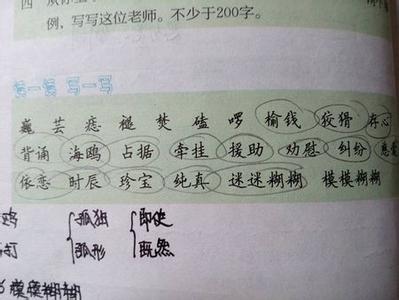 例，写写这位老师。不少于200字。
读一读 写一写
巍 芸 痣 褪 焚 磕 啰 榆钱 狡猾 存心
背诵 海鸥 占据 牵挂 援助 劝慰 纠纷
依恋 时辰 珍宝 纯真 迷迷糊糊 模模糊糊
孤独 即使
打 弧形 既然
模模糊糊